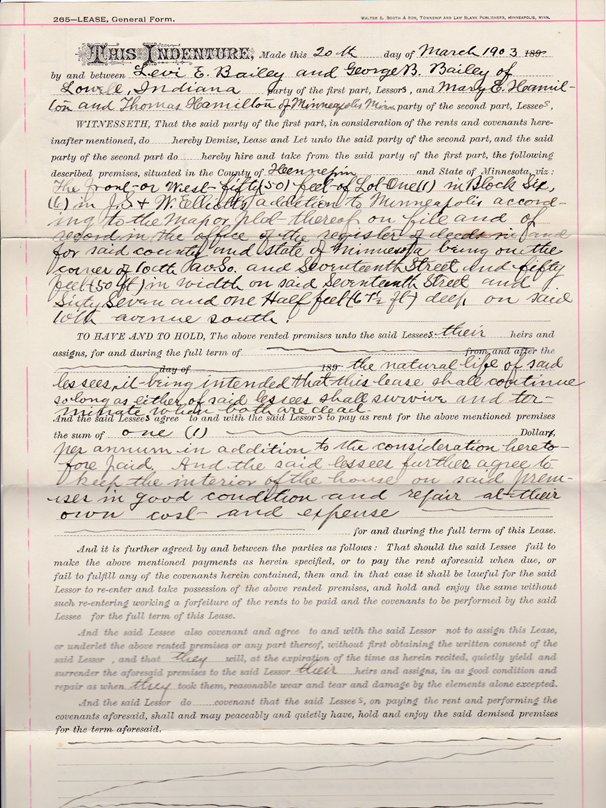 265—LEASE, General Form.
WALTER S. BOOTH & SON, TOWNSHIP AND LAW BLANK PUBLISHERS, MINNEAPOLIS, MINN.
THIS INDENTURE, Made this 20th day of March 1903 189-
by and between Levi E. Bailey and George B. Bailey of
Lowell, Indiana party of the first part, Lessors, and Mary E. Hamil-
ton and Thomas Hamilton of Minneapolis Minn party of the second part, Lessees,
WITNESSETH, That the said party of the first part, in consideration of the rents and covenants here-
inafter mentioned, do hereby Demise, Lease and Let unto the said party of the second part, and the said
party of the second part do hereby hire and take from the said party of the first part, the following
described premises, situated in the County of Hennepin and State of Minnesota, viz:
The front or West fifty (50) feet of Lot One (1) in Block Six
(6) in J.S & W Elliott's addition to Minneapolis accord-
ing to the map or plat thereof on file and of
record in the office of the register of deeds in and
for said county and state of Minnesota being on the
corner of 10th av. So. and Seventeenth Street and fifty
feet (50 ft) in width on said Seventeenth Street and
Sixty Seven and one Half feet (67½ ft) deep on said
10th avenue south.
TO HAVE AND TO HOLD, The above rented premises unto the said Lessees their heirs and
assigns, for and during the full term of from and after the
day of 189 the natural life of said
lessees, it being intended that this lease shall continue
so long as either of said lessees shall survive and ter-
minate when both are dead.
And the said Lessees agree to and with the said Lessors to pay as rent for the above mentioned premises
the sum of one (1) Dollars,
per annum in addition to the consideration hereto-
fore paid. And the said lessees further agree to
keep the interior of the house on said prem-
ises in good condition and repair at their
own cost and expense
for and during the full term of this Lease.
And it is further agreed by and between the parties as follows: That should the said Lessee fail to
make the above mentioned payments as herein specified, or to pay the rent aforesaid when due, or
fail to fulfill any of the covenants herein contained, then and in that case it shall be lawful for the said
Lessor to re-enter and take possession of the above rented premises, and hold and enjoy the same without
such re-entering working a forfeiture of the rents to be paid and the covenants to be performed by the said
Lessee for the full term of this Lease.
And the said Lessee also covenant and agree to and with the said Lessor not to assign this Lease,
or underlet the above rented premises or any part thereof, without first obtaining the written consent of the
said Lessor , and that they will, at the expiration of the time as herein recited, quietly yield and
surrender the aforesaid premises to the said Lessor their heirs and assigns, in as good condition and
repair as when they took them, reasonable wear and tear and damage by the elements alone excepted.
And the said Lessor do covenant that the said Lessees, on paying the rent and performing the
covenants aforesaid, shall and may peaceably and quietly have, hold and enjoy the said demised premises
for the term aforesaid.